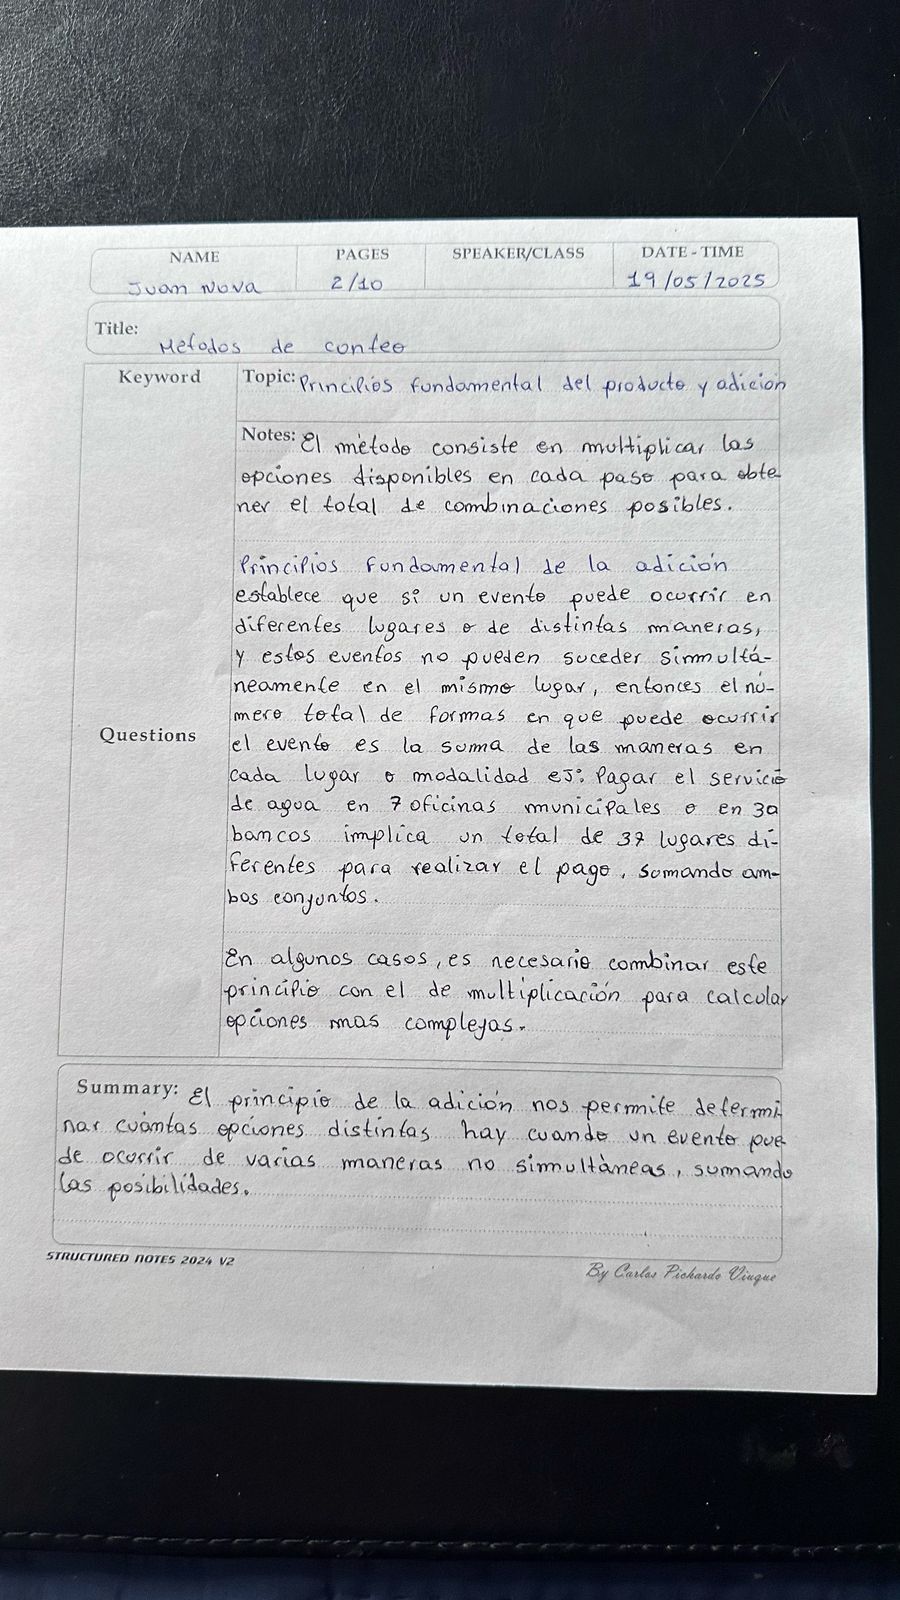 NAME PAGES SPEAKER/CLASS DATE-TIME
Juan Nova 2/10 19/05/2025
Title:
Metodos de conteo
Keyword
Topic: Principios fundamental del producto y adición
Notes: El método consiste en multiplicar las
opciones disponibles en cada paso para obte-
ner el total de combinaciones posibles.
Principios fundamental de la adición
establece que si un evento puede ocurrir en
diferentes lugares o de distintas maneras,
y estos eventos no pueden suceder simmultá-
neamente en el mismo lugar, entonces el nú-
mero total de formas en que puede ocurrir
Questions
el evento es la suma de las maneras en
cada lugar o modalidad ej: Pagar el servicio
de agua en 7 oficinas municipales o en 30
bancos implica un total de 37 lugares di-
ferentes para realizar el pago, sumando am-
bos conjuntos.
En algunos casos, es necesario combinar este
principio con el de multiplicación para calcular
opciones mas complejas.
Summary: El principio de la adición nos permite determi
nar cuántas opciones distintas hay cuando un evento pue-
de ocurrir de varias maneras no simultáneas, sumando
las posibilidades.
STRUCTURED NOTES 2024 V2
By Carlos Pichardo Viuque